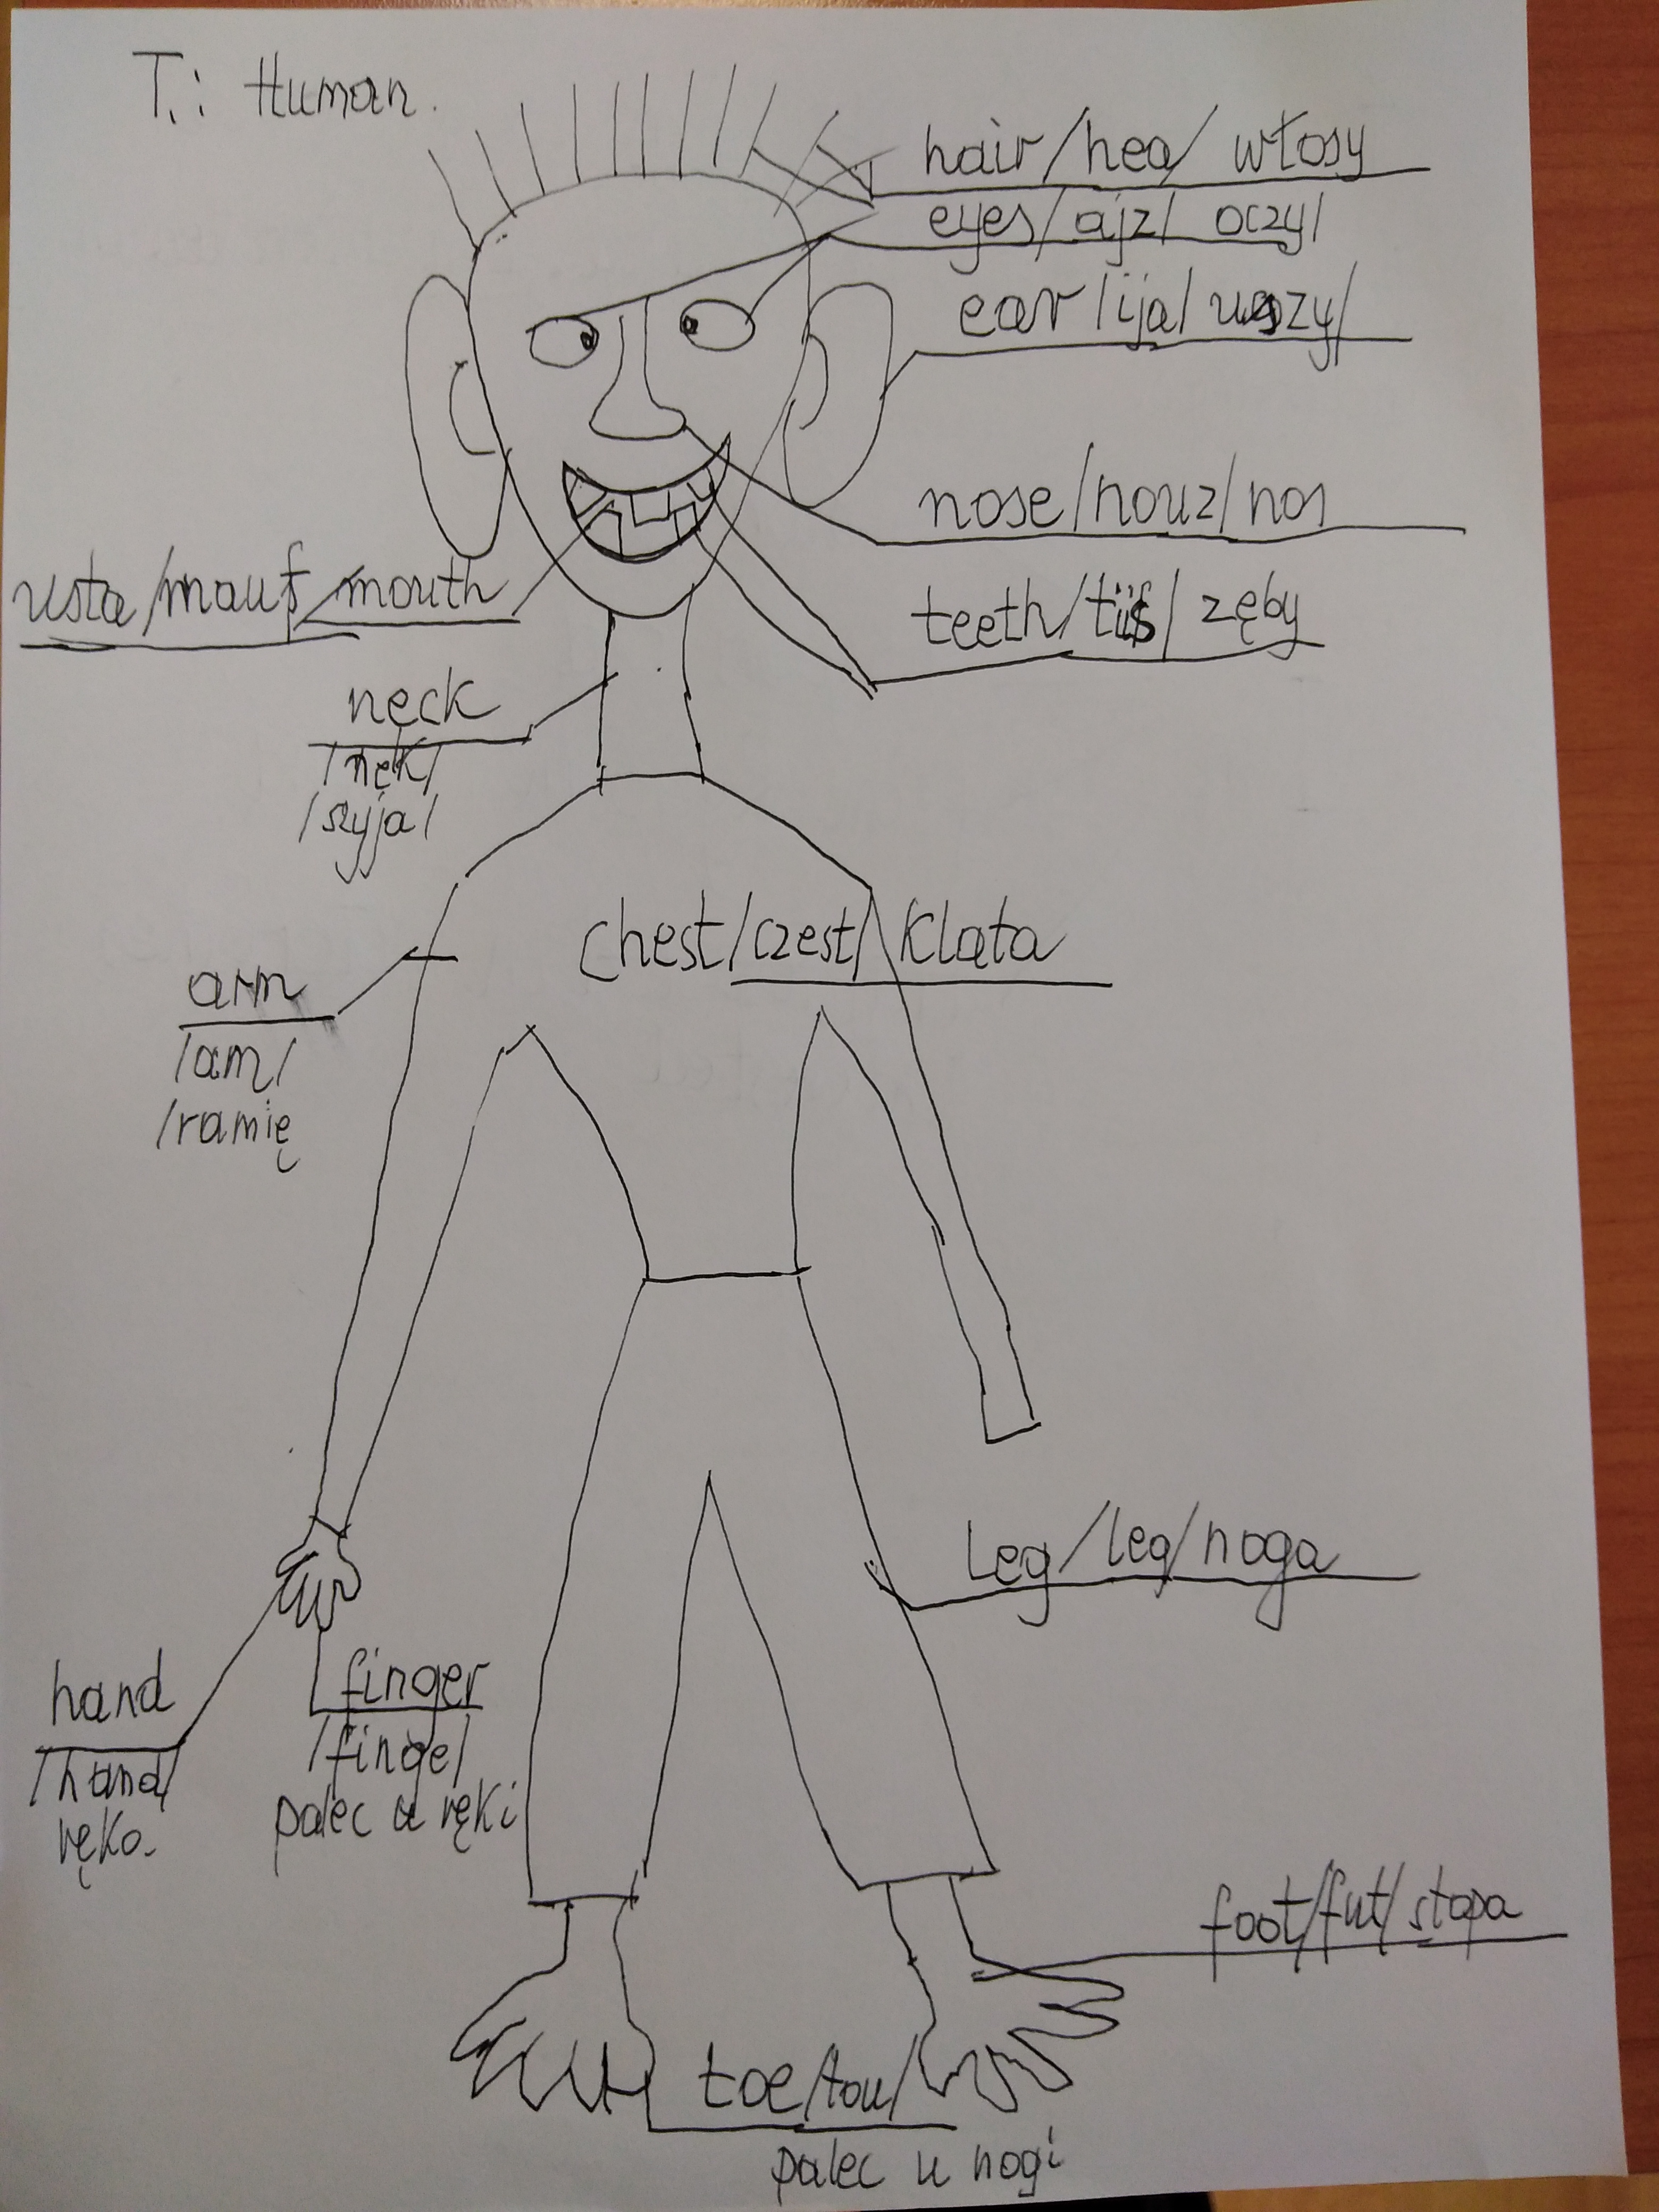 T.: Human.
hair/hea/ włosy
eyes/ajz/ oczy/
ear/ija/ uszy/
nose/nouz/nos
usta/mauf/mouth
teeth/tiis/ zęby
neck
/nek/
/szyja/
chest/czest/klata
arm
/am/
/ramię
leg/leg/noga
hand
/hand/
ręka
finger
/finge/
palec u ręki
foot/fut/stopa
toe/tou/
palec u nogi